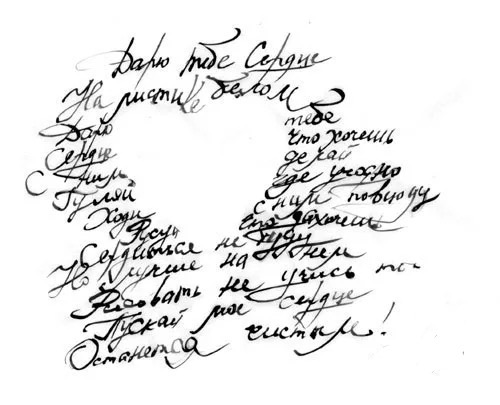 Дарю тебе Сердце
На листике белом
Дарю тебе
Сердце что хочешь
С ним делай
Гуляй где угодно
Ходи с ним повсюду
Рисуй что захочешь
Сердиться не буду
Но лучше на нем
Рисовать не учись ты
Пускай мое сердце
Останется чистым!